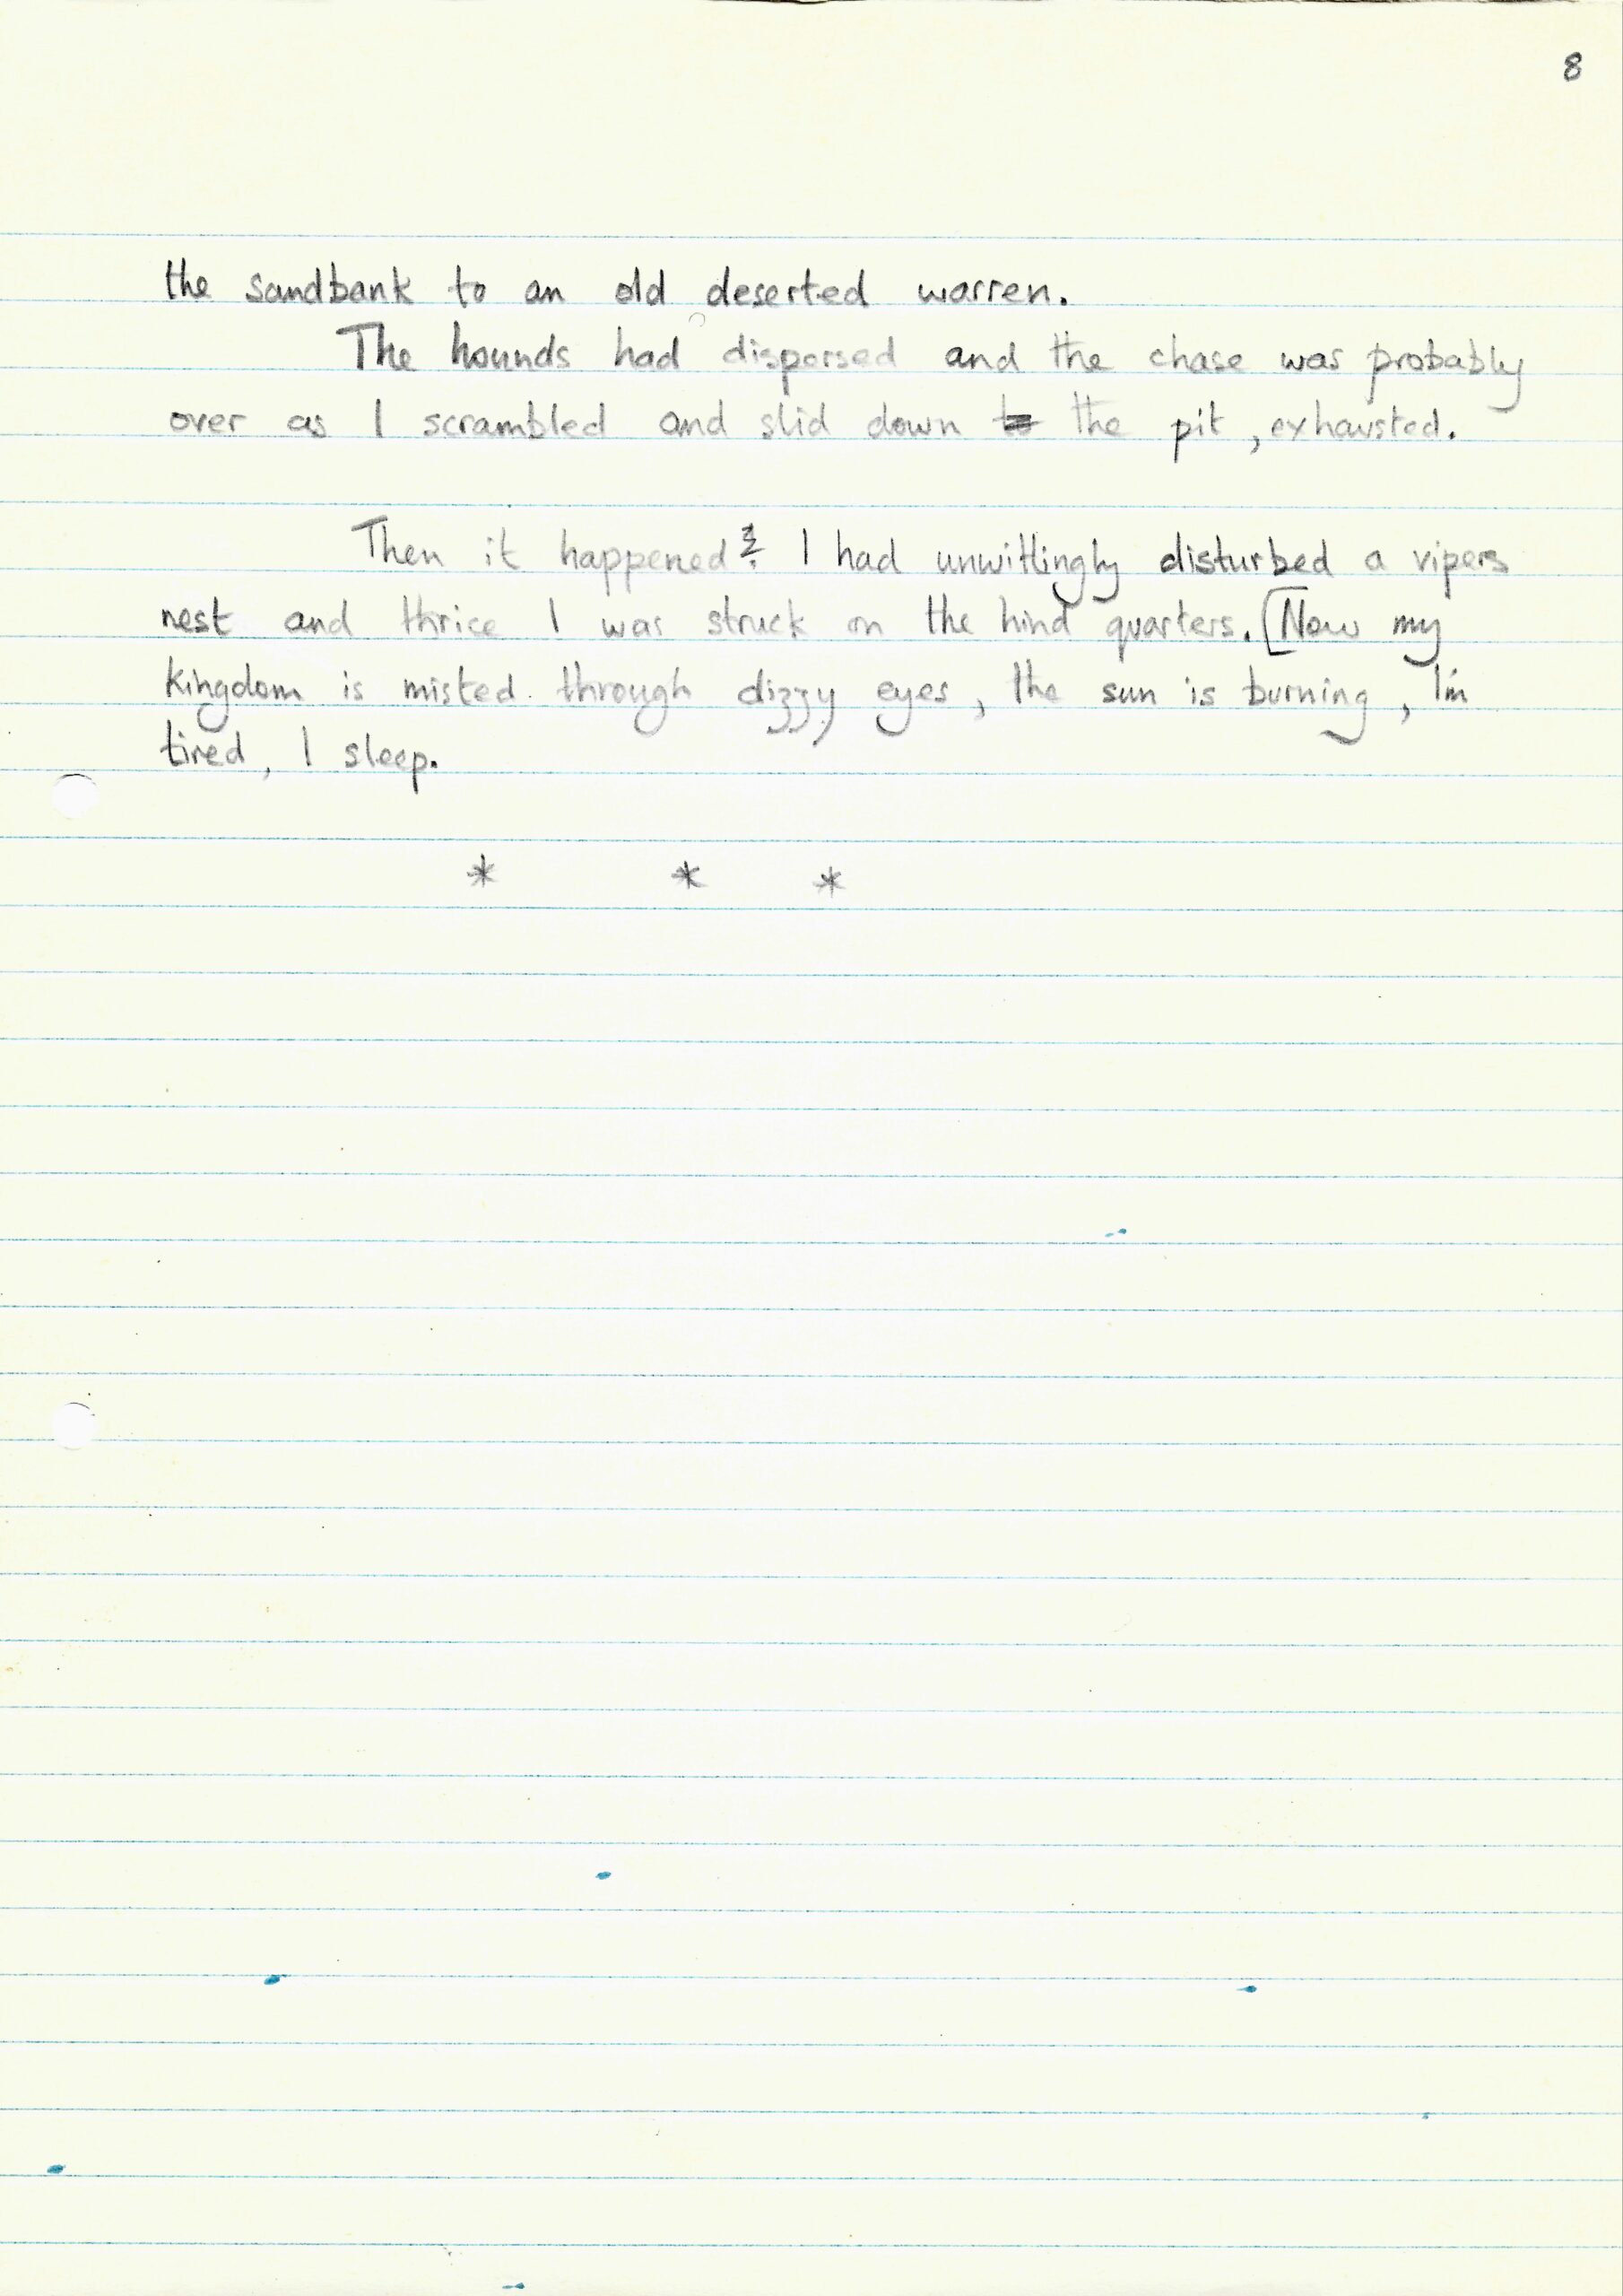 8
the sandbank to an old deserted warren.
The hounds had dispersed and the chase was probably
over as I scrambled and slid down to the pit, exhausted.
Then it happened. I had unwittingly disturbed a vipers
nest and thrice I was struck on the hind quarters. [Now my
kingdom is misted through dizzy eyes, the sun is burning, I'm
tired, I sleep.
* * *